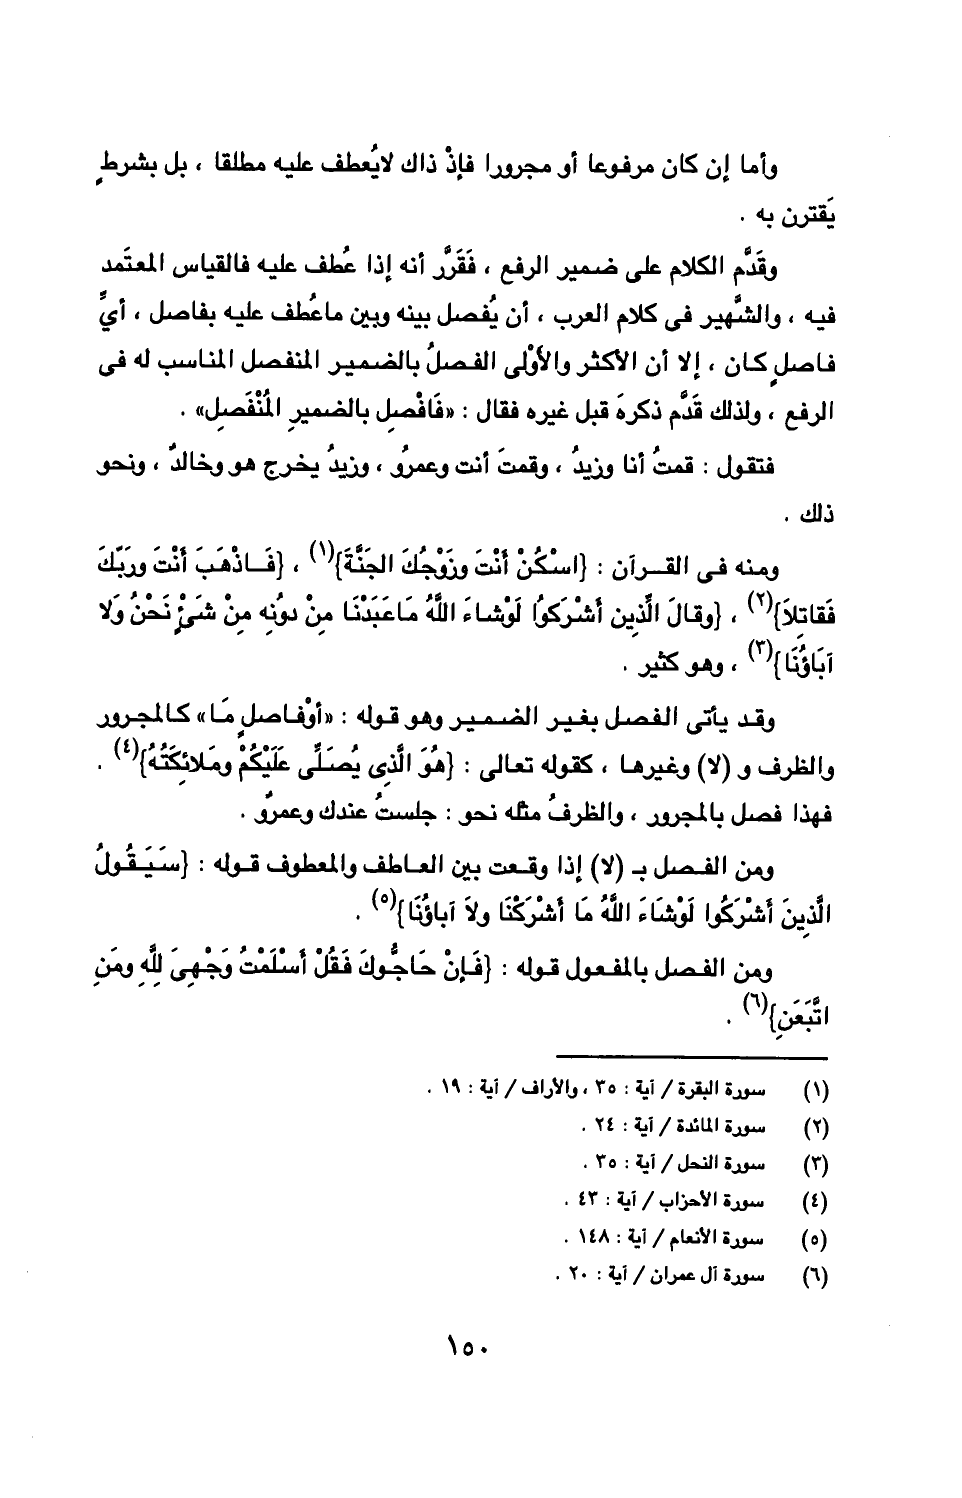 وأما إن كان مرفوعا أو مجرورا فإذْ ذاك لايُعطف عليه مطلقا ، بل بشرطٍ
يَقترن به .
وقَدَّم الكلام على ضمير الرفع ، فَقَرَّر أنه إذا عُطف عليه فالقياس المعتَمد
فيه ، والشَّهير فى كلام العرب ، أن يُفصل بينه وبين ماعُطف عليه بفاصل ، أىِّ
فاصلٍ كان ، إلا أن الأكثر والأوْلى الفصلُ بالضمير المنفصل المناسب له فى
الرفع ، ولذلك قَدَّم ذكرهَ قبل غيره فقال : «فَافْصِل بالضميرِ المُنْفَصِلِ» .
فتقول : قمتُ أنا وزيدٌ ، وقمتَ أنت وعمروٌ ، وزيدٌ يخرج هو وخالدٌ ، ونحو
ذلك .
ومنه فى القرآن : {اسْكُنْ أَنْتَ وزَوْجُكَ الجَنَّةَ}(١) ، {فَاذْهَبَ أَنْتَ ورَبّكَ
فَقَاتلاَ}(٢) ، {وقالَ الَّذِين أَشْرَكوُا لَوْشاءَ اللَّهُ مَاعَبَدْنَا مِنْ دوُنِه مِنْ شَئٍْ نَحْنُ ولَا
آبَاؤُنَا}(٣) ، وهو كثير .
وقد يأتى الفصل بغير الضمير وهو قوله : «أوْفاصلٍ مَا» كالمجرور
والظرف و (لا) وغيرها ، كقوله تعالى : {هُوَ الَّذِى يُصَلِّى عَلَيْكُمْ ومَلائِكَتُهُ}(٤) .
فهذا فصل بالمجرور ، والظرفُ مثله نحو : جلستُ عندك وعمروٌ .
ومن الفصل بـ (لا) إذا وقعت بين العاطف والمعطوف قوله : {سَيَقُولُ
الَّذِينَ أَشْرَكُوا لَوْشَاءَ اللَّهُ مَا أَشْرَكْنَا ولاَ آباؤُنَا}(٥) .
ومن الفصل بالمفعول قوله : {فَإنْ حَاجُّوكَ فَقُلْ أَسْلَمْتُ وَجْهِىَ للَّهِ ومَنِ
اتَّبَعَنِ}(٦) .
(١) سورة البقرة / آية : ٣٥ ، والأراف / آية : ١٩ .
(٢) سورة المائدة / آية : ٢٤ .
(٣) سورة النحل / آية : ٣٥ .
(٤) سورة الأحزاب / آية : ٤٣ .
(٥) سورة الأنعام / آية : ١٤٨ .
(٦) سورة آل عمران / آية : ٢٠ .
١٥٠